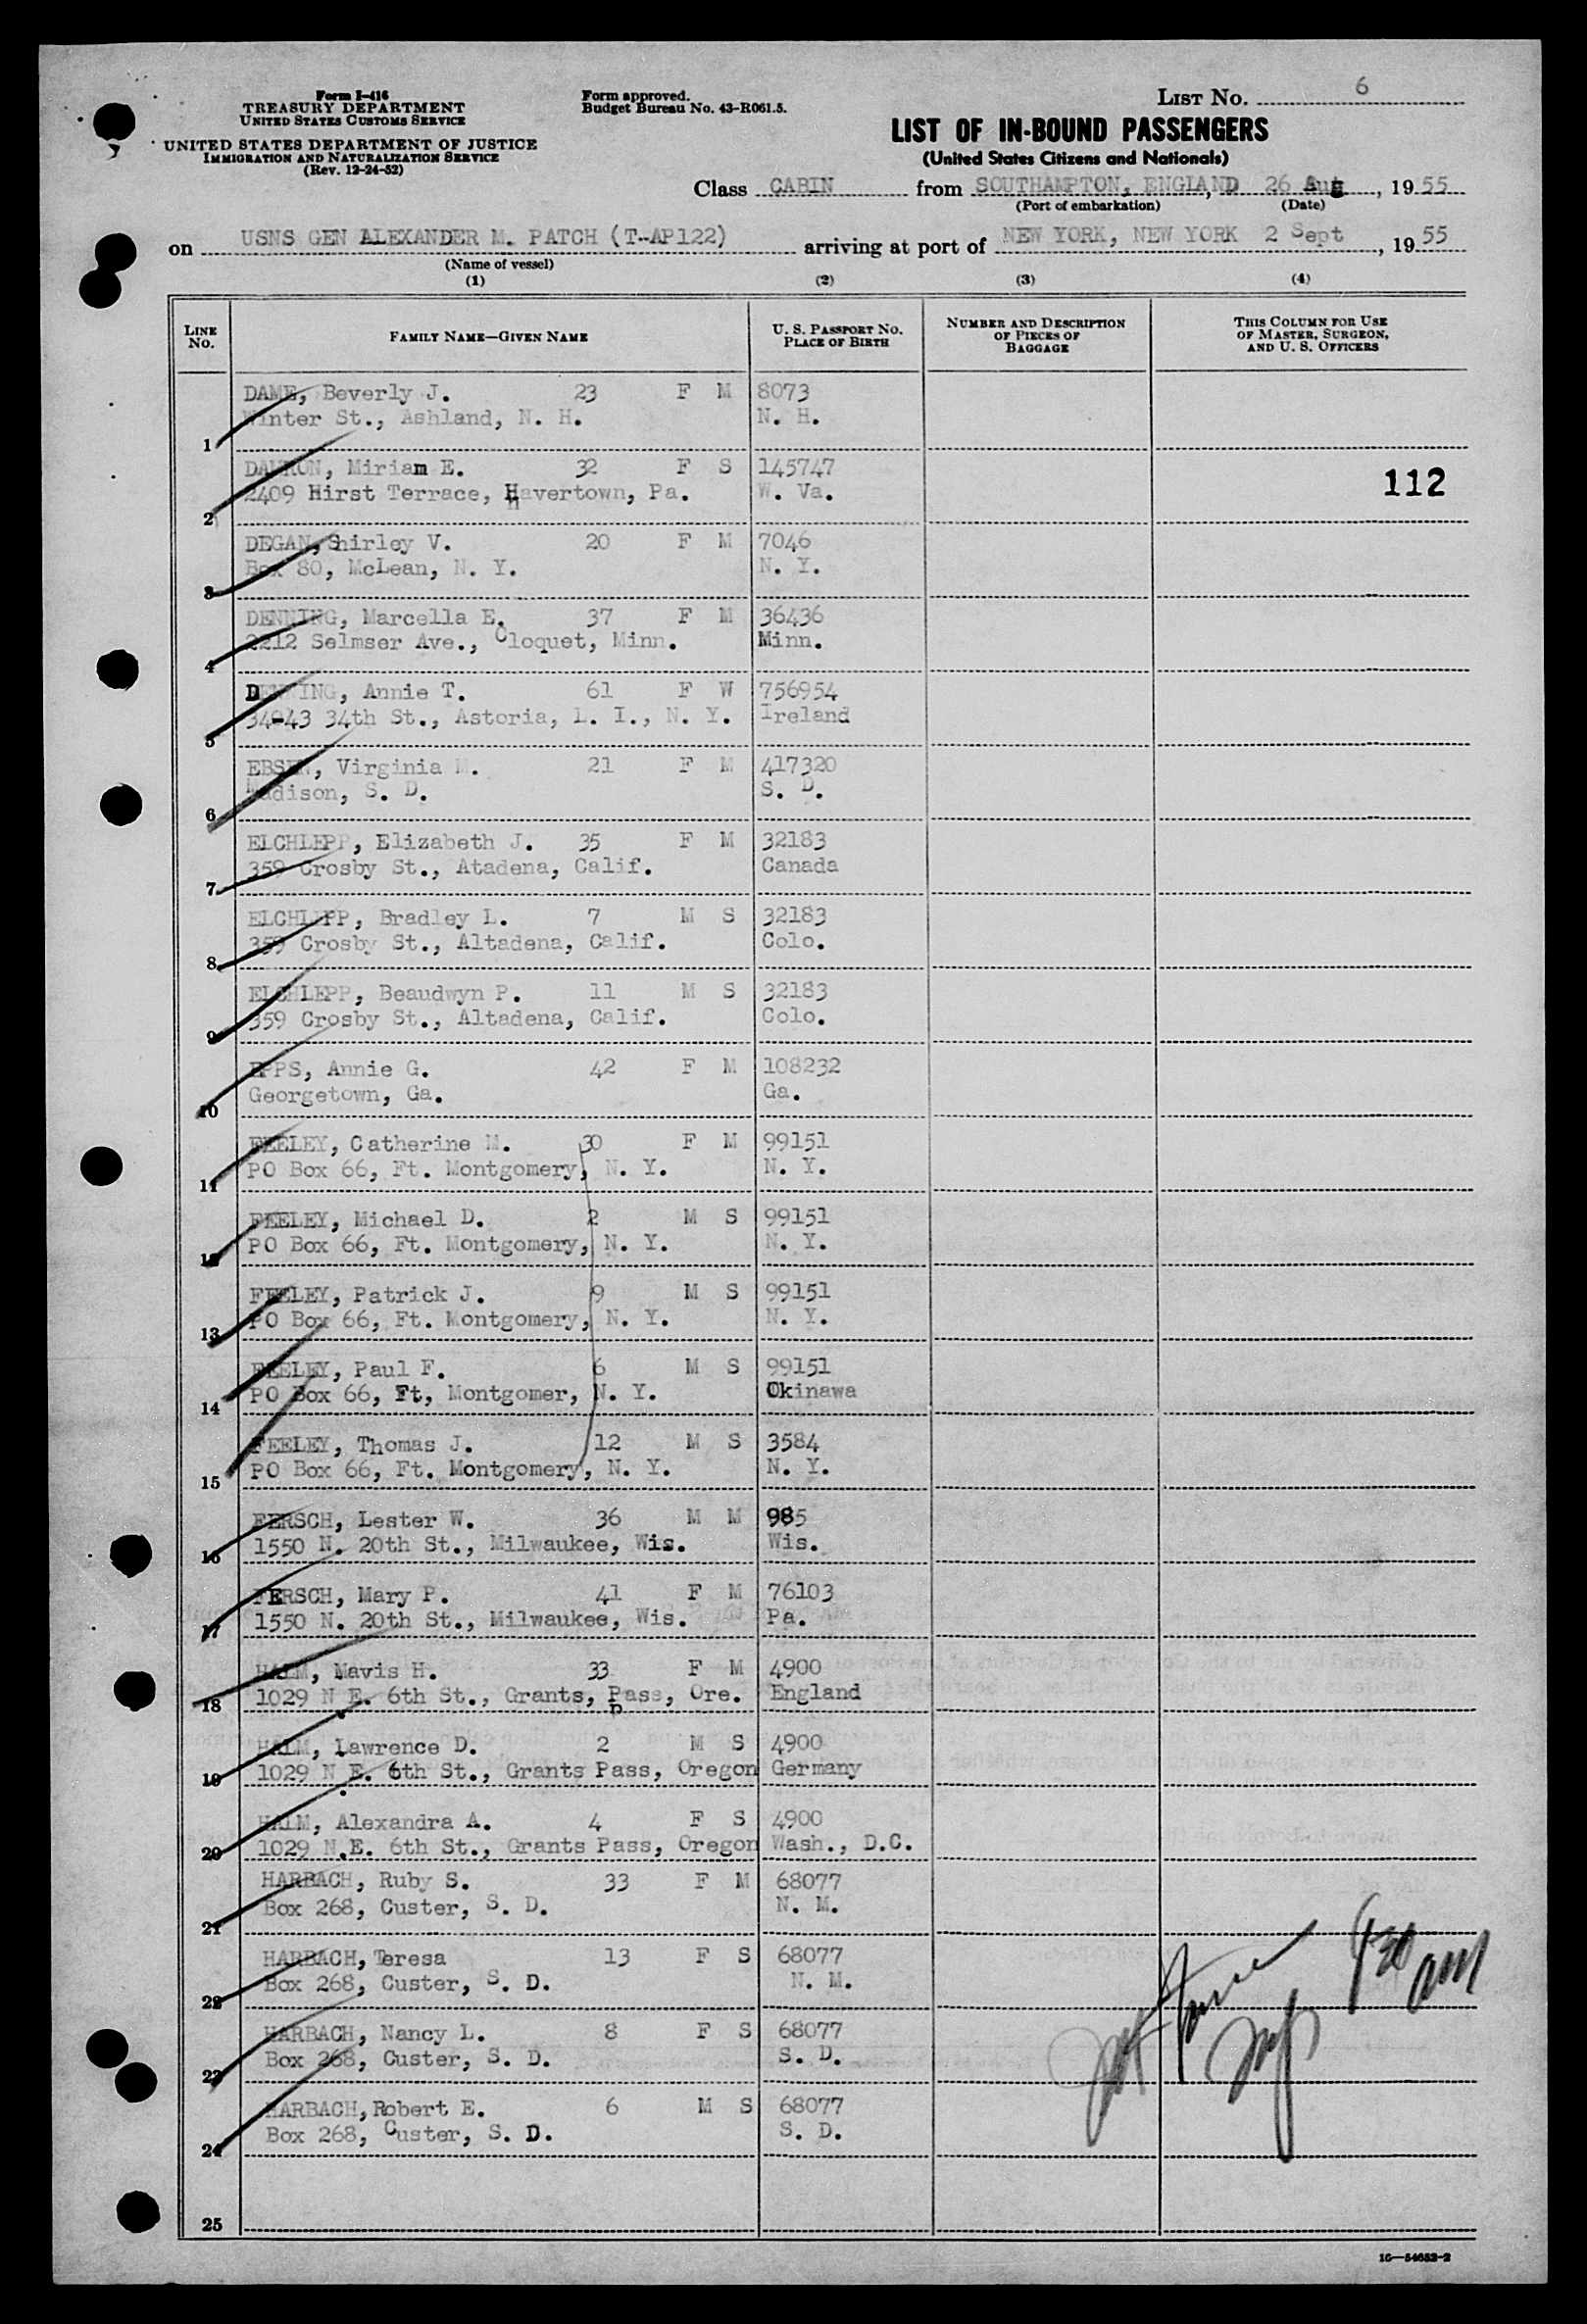 Form I-416
TREASURY DEPARTMENT
UNITED STATES CUSTOMS SERVICE
UNITED STATES DEPARTMENT OF JUSTICE
IMMIGRATION AND NATURALIZATION SERVICE
(Rev. 12-24-52)
Form approved.
Budget Bureau No. 43-R061.5.
LIST No. 6
LIST OF IN-BOUND PASSENGERS
(United States Citizens and Nationals)
Class CABIN from SOUTHAMPTON, ENGLAND 26 Aug, 1955
(Port of embarkation) (Date)
on USNS GEN ALEXANDER M. PATCH (T-AP122) arriving at port of NEW YORK, NEW YORK 2 Sept, 1955
(Name of vessel)
(1) (2) (3) (4)
LINE No. FAMILY NAME—GIVEN NAME U. S. PASSPORT NO. PLACE OF BIRTH NUMBER AND DESCRIPTION OF PIECES OF BAGGAGE THIS COLUMN FOR USE OF MASTER, SURGEON, AND U. S. OFFICERS
DAME, Beverly J. 23 F M 8073
1 Winter St., Ashland, N. H. N. H.
Miriam E. 32 F S 145747
112
2 2409 Hirst Terrace, Havertown, Pa. W. Va.
DEGAN, Shirley V. 20 F M 7046
3 Box 80, McLean, N. Y. N. Y.
DENNING, Marcella E. 37 F M 36436
4 2212 Selmser Ave., Cloquet, Minn. Minn.
DENNING, Annie T. 61 F W 756954
5 34-43 34th St., Astoria, L. I., N. Y. Ireland
EBSEN, Virginia M. 21 F M 417320
6 Madison, S. D. S. D.
ELCHLEPP, Elizabeth J. 35 F M 32183
7 359 Crosby St., Atadena, Calif. Canada
ELCHLEPP, Bradley L. 7 M S 32183
8 359 Crosby St., Altadena, Calif. Colo.
ELCHLEPP, Beaudwyn P. 11 M S 32183
9 359 Crosby St., Altadena, Calif. Colo.
EPPS, Annie G. 42 F M 108232
10 Georgetown, Ga. Ga.
FEELEY, Catherine M. 30 F M 99151
11 PO Box 66, Ft. Montgomery, N. Y. N. Y.
FEELEY, Michael D. 2 M S 99151
12 PO Box 66, Ft. Montgomery, N. Y. N. Y.
FEELEY, Patrick J. 9 M S 99151
13 PO Box 66, Ft. Montgomery, N. Y. N. Y.
FEELEY, Paul F. 6 M S 99151
14 PO Box 66, Ft, Montgomer, N. Y. Okinawa
FEELEY, Thomas J. 12 M S 3584
15 PO Box 66, Ft. Montgomery, N. Y. N. Y.
FERSCH, Lester W. 36 M M 985
16 1550 N. 20th St., Milwaukee, Wis. Wis.
FERSCH, Mary P. 41 F M 76103
17 1550 N. 20th St., Milwaukee, Wis. Pa.
HALM, Mavis H. 33 F M 4900
18 1029 N.E. 6th St., Grants, Pass, Ore. England
HALM, Lawrence D. 2 M S 4900
19 1029 N.E. 6th St., Grants Pass, Oregon Germany
HALM, Alexandra A. 4 F S 4900
20 1029 N.E. 6th St., Grants Pass, Oregon Wash., D.C.
HARBACH, Ruby S. 33 F M 68077
21 Box 268, Custer, S. D. N. M.
HARBACH, Teresa 13 F S 68077
22 Box 268, Custer, S. D. N. M.
HARBACH, Nancy L. 8 F S 68077
23 Box 268, Custer, S. D. S. D.
HARBACH, Robert E. 6 M S 68077
24 Box 268, Custer, S. D. S. D.
930 am
25
16—54652-2